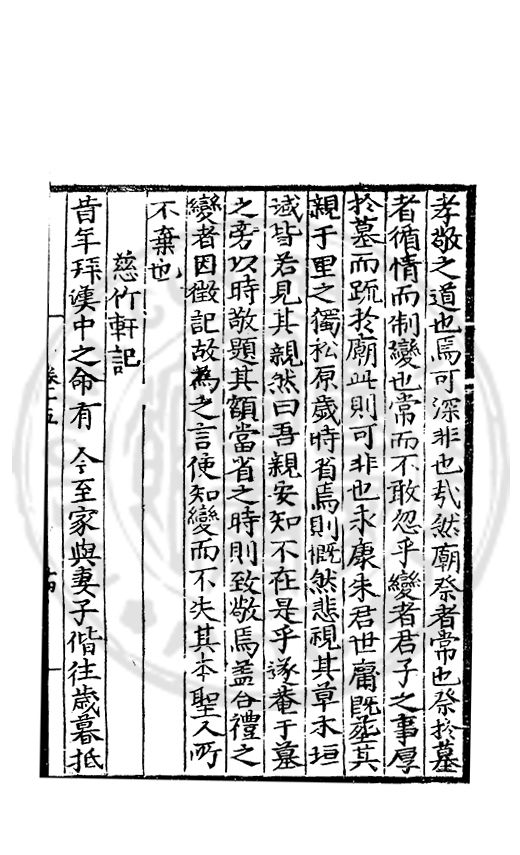 孝敬之道也焉可深非也㢤然廟祭者常也祭於墓
者循情而制變也常而不敢忽乎變者君子之事厚
於墓而䟽於廟此則可非也永康朱君世庸既塟其
親于里之獨松原歲時省焉則慨然悲視其草木垣
域皆若見其親然曰吾親安知不在是乎遂菴于墓
之旁以時敬題其額當省之時則致敬焉盖合禮之
變者因徵記故為之言使知變而不失其本聖人所
不棄也
慈竹軒記
昔年拜漢中之命有 令至家與妻子偕往歲暮抵